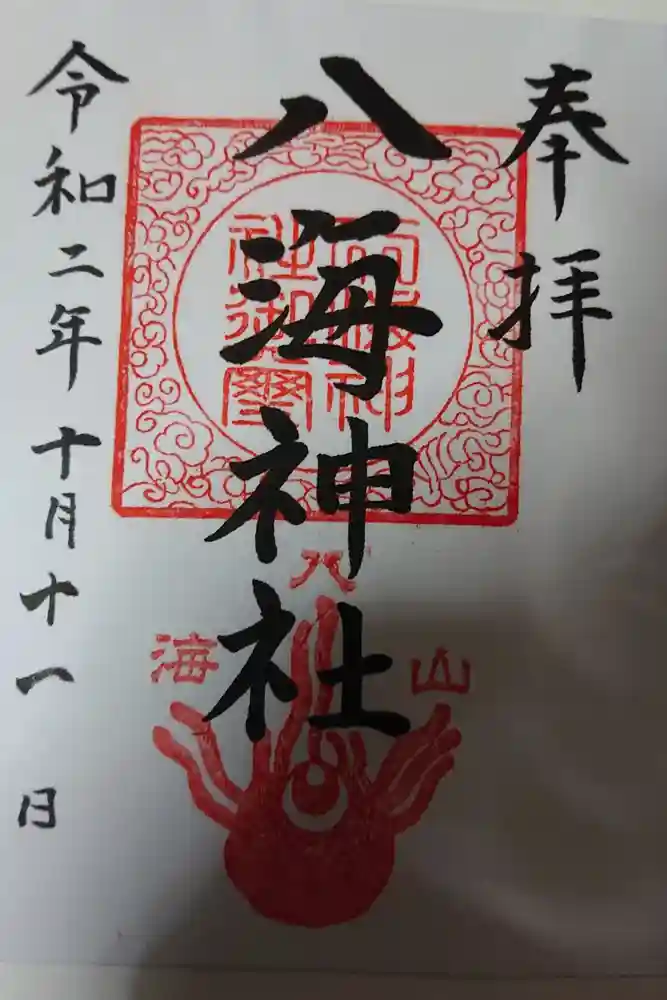 奉拝
八海神社
令和二年十月十一日
八
海
山